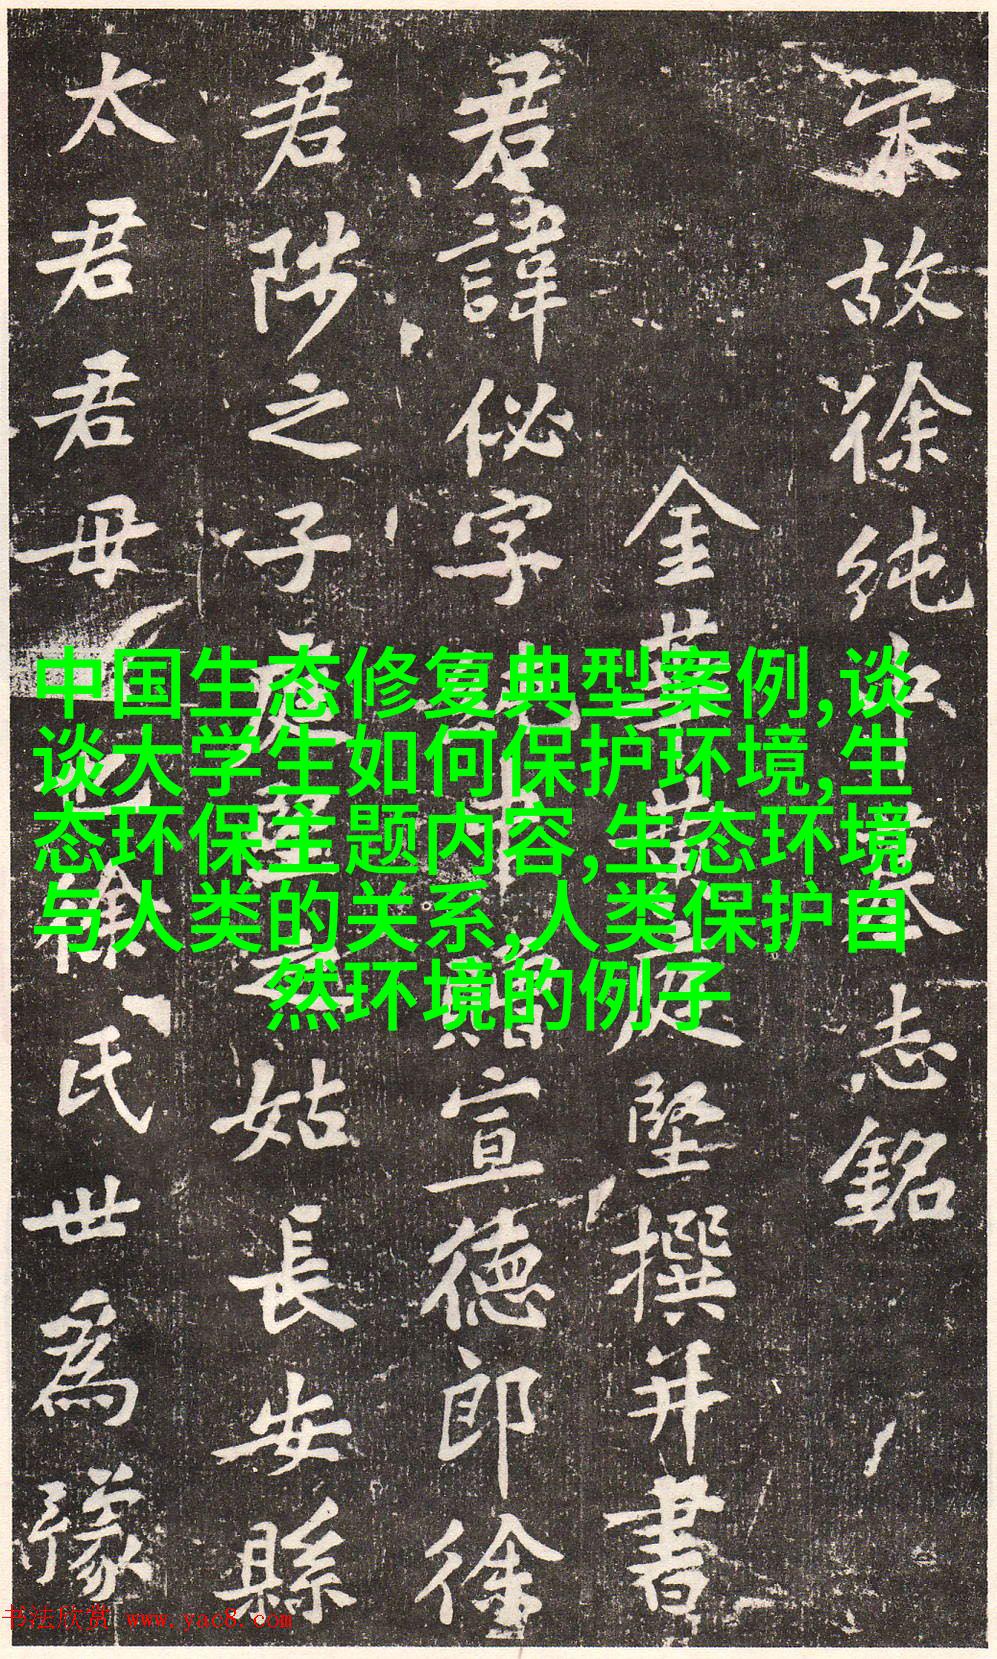 宋故徐純中墓志銘
金華黃庭堅撰并書
君諱佖字純中贈宣德郎徐
君陟之子 姑長安縣
太君君母 徐氏世爲豫
中国生态修复典型案例,谈
谈大学生如何保护环境,生
态环保主题内容,生态环境
与人类的关系,人类保护自
然环境的例子
书法欣赏 www.yac8.com